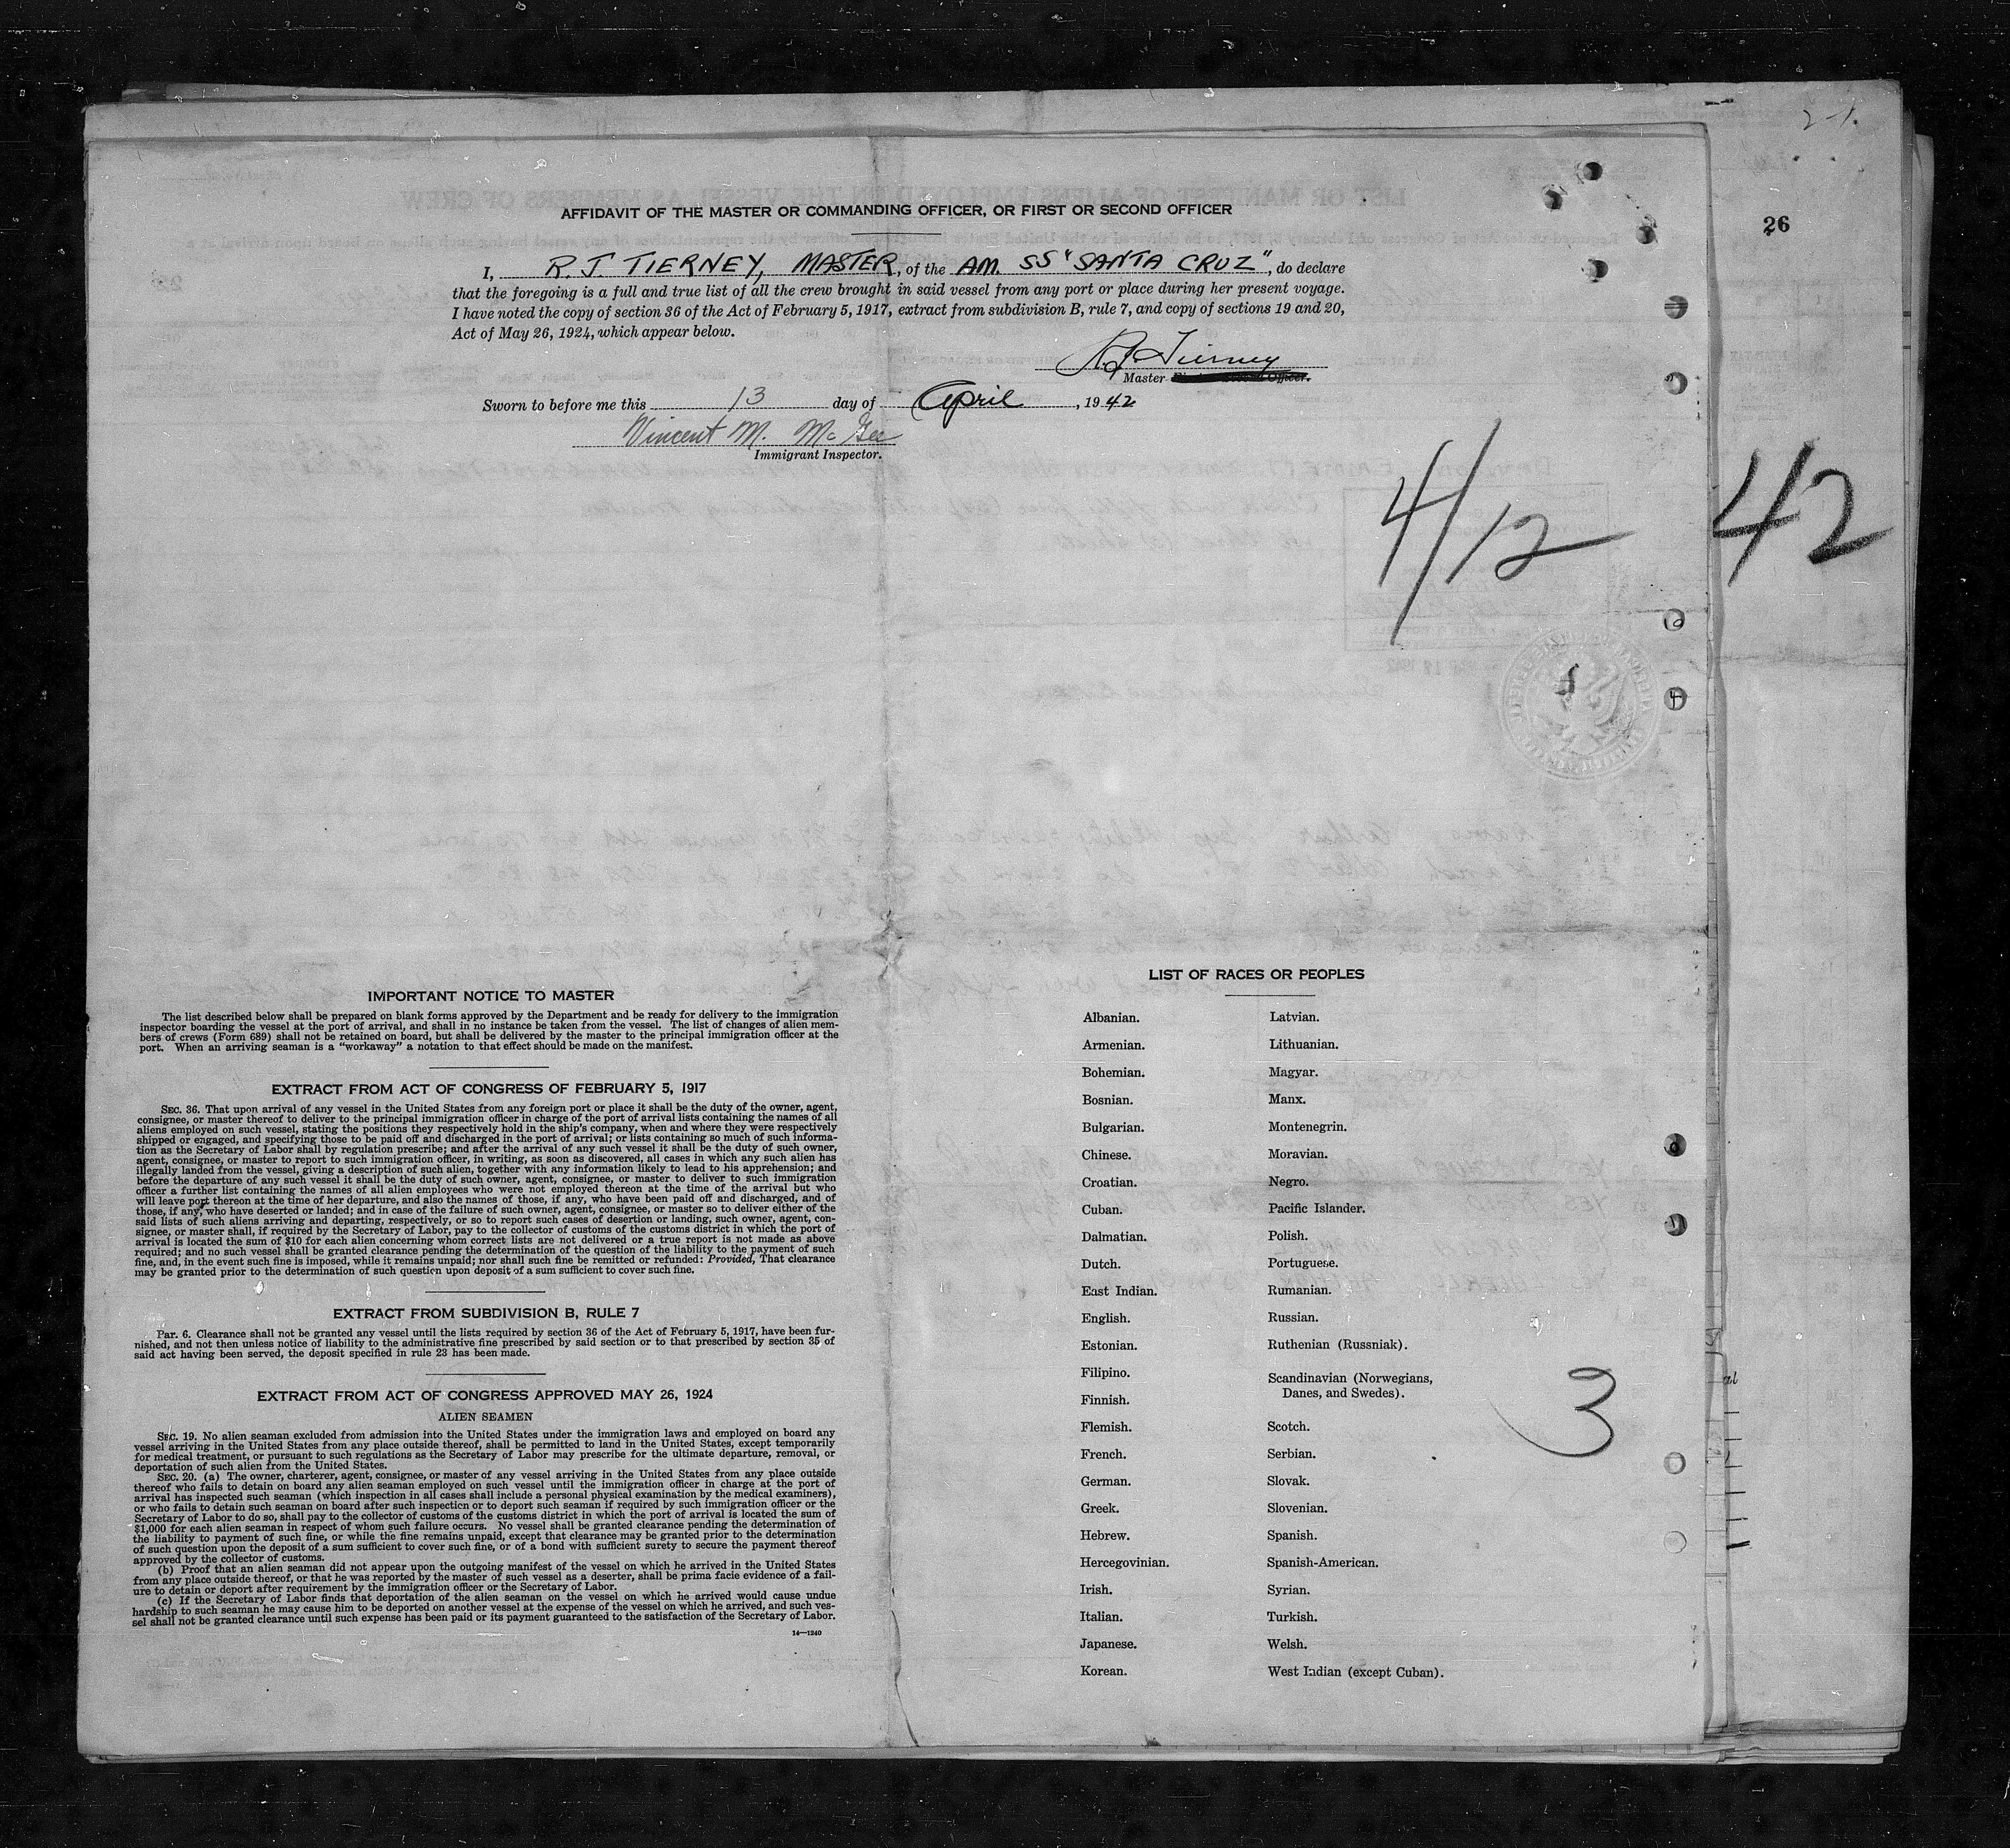 2-1.
26
AFFIDAVIT OF THE MASTER OR COMMANDING OFFICER, OR FIRST OR SECOND OFFICER
I, R. J. TIERNEY, MASTER, of the AM. SS "SANTA CRUZ", do declare
that the foregoing is a full and true list of all the crew brought in said vessel from any port or place during her present voyage.
I have noted the copy of section 36 of the Act of February 5, 1917, extract from subdivision B, rule 7, and copy of sections 19 and 20,
Act of May 26, 1924, which appear below.
R J Tierney
Master
Sworn to before me this 13 day of April, 1942
Vincent M. McGee
Immigrant Inspector.
4/12 42
IMPORTANT NOTICE TO MASTER
The list described below shall be prepared on blank forms approved by the Department and be ready for delivery to the immigration
inspector boarding the vessel at the port of arrival, and shall in no instance be taken from the vessel. The list of changes of alien mem-
bers of crews (Form 689) shall not be retained on board, but shall be delivered by the master to the principal immigration officer at the
port. When an arriving seaman is a "workaway" a notation to that effect should be made on the manifest.
EXTRACT FROM ACT OF CONGRESS OF FEBRUARY 5, 1917
SEC. 36. That upon arrival of any vessel in the United States from any foreign port or place it shall be the duty of the owner, agent,
consignee, or master thereof to deliver to the principal immigration officer in charge of the port of arrival lists containing the names of all
aliens employed on such vessel, stating the positions they respectively hold in the ship's company, when and where they were respectively
shipped or engaged, and specifying those to be paid off and discharged in the port of arrival; or lists containing so much of such informa-
tion as the Secretary of Labor shall by regulation prescribe; and after the arrival of any such vessel it shall be the duty of such owner,
agent, consignee, or master to report to such immigration officer, in writing, as soon as discovered, all cases in which any such alien has
illegally landed from the vessel, giving a description of such alien, together with any information likely to lead to his apprehension; and
before the departure of any such vessel it shall be the duty of such owner, agent, consignee, or master to deliver to such immigration
officer a further list containing the names of all alien employees who were not employed thereon at the time of the arrival but who
will leave port thereon at the time of her departure, and also the names of those, if any, who have been paid off and discharged, and of
those, if any, who have deserted or landed; and in case of the failure of such owner, agent, consignee, or master so to deliver either of the
said lists of such aliens arriving and departing, respectively, or so to report such cases of desertion or landing, such owner, agent, con-
signee, or master shall, if required by the Secretary of Labor, pay to the collector of customs of the customs district in which the port of
arrival is located the sum of $10 for each alien concerning whom correct lists are not delivered or a true report is not made as above
required; and no such vessel shall be granted clearance pending the determination of the question of the liability to the payment of such
fine, and, in the event such fine is imposed, while it remains unpaid; nor shall such fine be remitted or refunded: Provided, That clearance
may be granted prior to the determination of such question upon deposit of a sum sufficient to cover such fine.
EXTRACT FROM SUBDIVISION B, RULE 7
Par. 6. Clearance shall not be granted any vessel until the lists required by section 36 of the Act of February 5, 1917, have been fur-
nished, and not then unless notice of liability to the administrative fine prescribed by said section or to that prescribed by section 35 of
said act having been served, the deposit specified in rule 23 has been made.
EXTRACT FROM ACT OF CONGRESS APPROVED MAY 26, 1924
ALIEN SEAMEN
SEC. 19. No alien seaman excluded from admission into the United States under the immigration laws and employed on board any
vessel arriving in the United States from any place outside thereof, shall be permitted to land in the United States, except temporarily
for medical treatment, or pursuant to such regulations as the Secretary of Labor may prescribe for the ultimate departure, removal, or
deportation of such alien from the United States.
SEC. 20. (a) The owner, charterer, agent, consignee, or master of any vessel arriving in the United States from any place outside
thereof who fails to detain on board any alien seaman employed on such vessel until the immigration officer in charge at the port of
arrival has inspected such seaman (which inspection in all cases shall include a personal physical examination by the medical examiners),
or who fails to detain such seaman on board after such inspection or to deport such seaman if required by such immigration officer or the
Secretary of Labor to do so, shall pay to the collector of customs of the customs district in which the port of arrival is located the sum of
$1,000 for each alien seaman in respect of whom such failure occurs. No vessel shall be granted clearance pending the determination of
the liability to payment of such fine, or while the fine remains unpaid, except that clearance may be granted prior to the determination
of such question upon the deposit of a sum sufficient to cover such fine, or of a bond with sufficient surety to secure the payment thereof
approved by the collector of customs.
(b) Proof that an alien seaman did not appear upon the outgoing manifest of the vessel on which he arrived in the United States
from any place outside thereof, or that he was reported by the master of such vessel as a deserter, shall be prima facie evidence of a fail-
ure to detain or deport after requirement by the immigration officer or the Secretary of Labor.
(c) If the Secretary of Labor finds that deportation of the alien seaman on the vessel on which he arrived would cause undue
hardship to such seaman he may cause him to be deported on another vessel at the expense of the vessel on which he arrived, and such ves-
sel shall not be granted clearance until such expense has been paid or its payment guaranteed to the satisfaction of the Secretary of Labor.
14—1240
LIST OF RACES OR PEOPLES
Albanian. Latvian.
Armenian. Lithuanian.
Bohemian. Magyar.
Bosnian. Manx.
Bulgarian. Montenegrin.
Chinese. Moravian.
Croatian. Negro.
Cuban. Pacific Islander.
Dalmatian. Polish.
Dutch. Portuguese.
East Indian. Rumanian.
English. Russian.
Estonian. Ruthenian (Russniak).
Filipino. Scandinavian (Norwegians,
Finnish. Danes, and Swedes).
Flemish. Scotch.
French. Serbian.
German. Slovak.
Greek. Slovenian.
Hebrew. Spanish.
Hercegovinian. Spanish-American.
Irish. Syrian.
Italian. Turkish.
Japanese. Welsh.
Korean. West Indian (except Cuban).
3